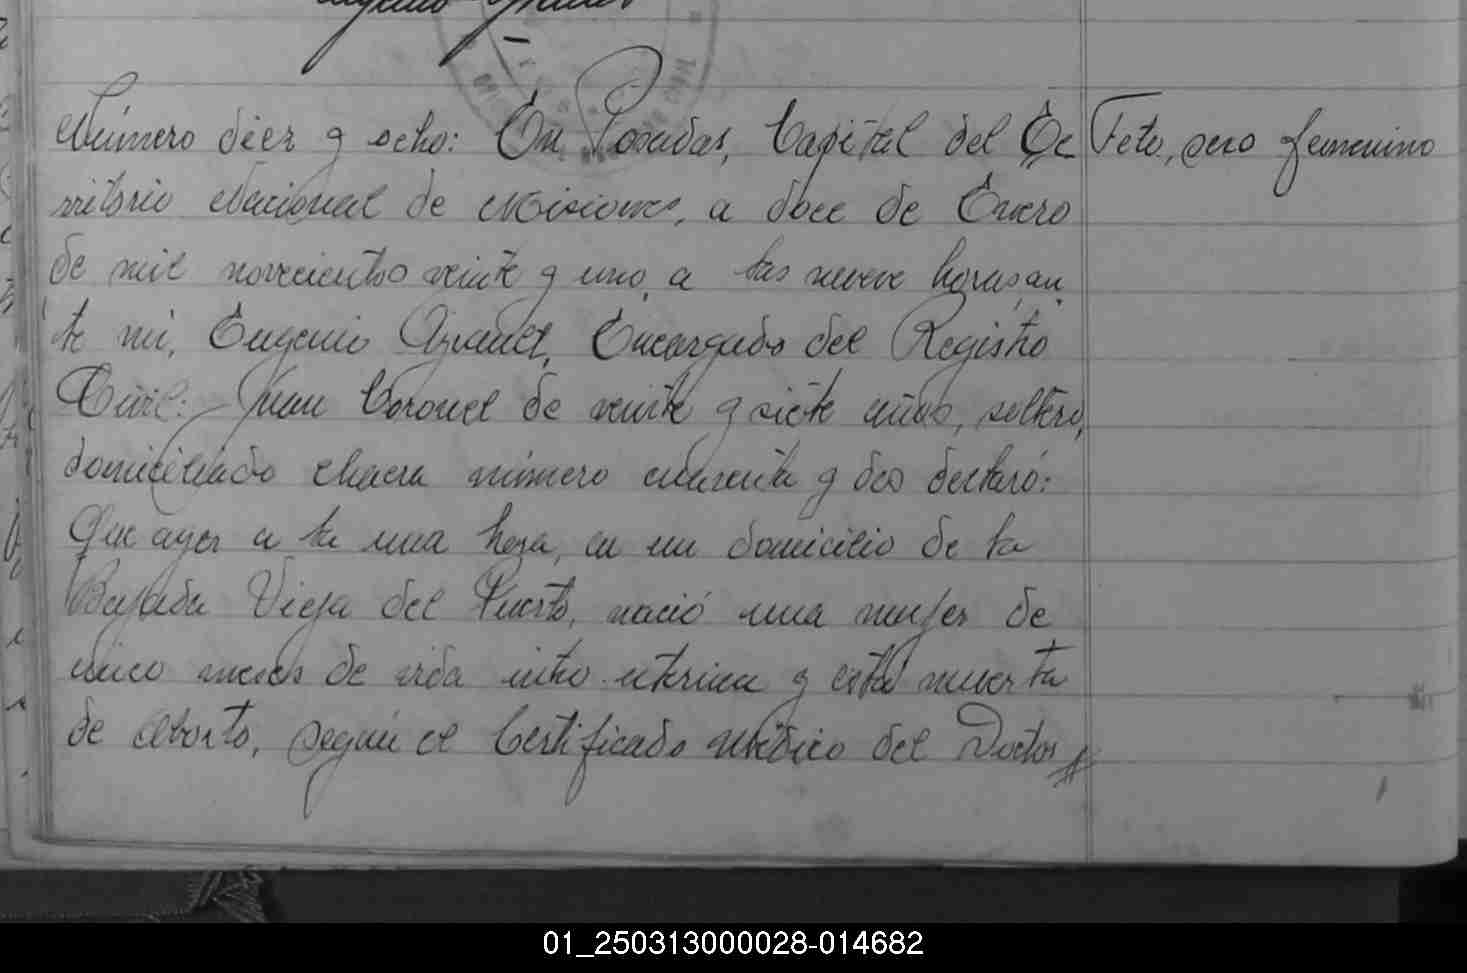 Número diez y ocho: En Posadas, Capital del Te
rritorio Nacional de Misiones, a doce de Enero
de mil novecientos veinte y uno, a las nueve horas, an
te mi, Eugenio Encargado del Registro
Civil: Juan Coronel de veinte y siete años, soltero,
domiciliado chacra número cuarenta y dos declaró:
Que ayer a la una hora, en un domicilio de la
Bajada Vieja del Puerto, nació una mujer de
cinco meses de vida intro uterina y está muerta
de aborto, según el Certificado médico del Doctor
Feto, sexo femenino
01_250313000028-014682